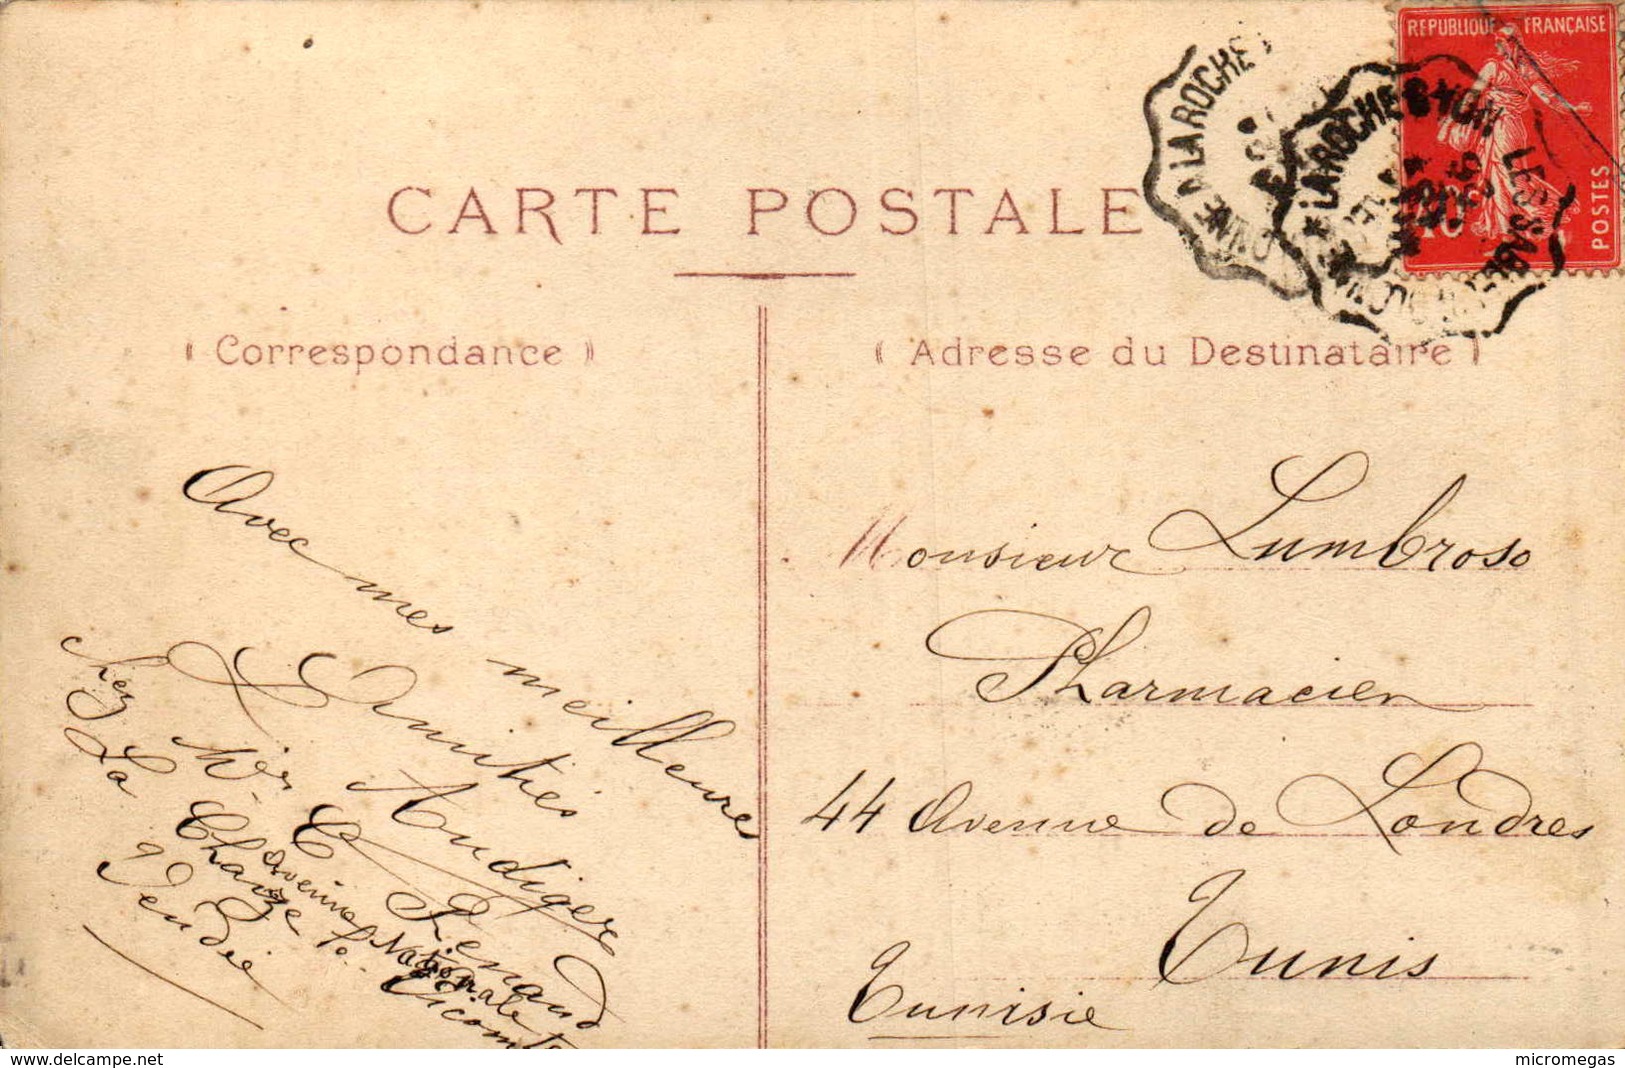 REPUBLIQUE FRANÇAISE
POSTES
10c
LES SABLES D'OLONNE A LA ROCHE S YON
LES SABLES D'OLONNE * LA ROCHE-S-YON
CARTE POSTALE
Correspondance
Adresse du Destinataire
Avec mes meilleures
Amitiés
L. Audiger
chez Mr. C. Renaud
Avenue Nationale
La Chaize le Vicomte
Vendée
Monsieur Lumbroso
Pharmacien
44 Avenue de Londres
Tunis
Tunisie
www.delcampe.net
micromegas